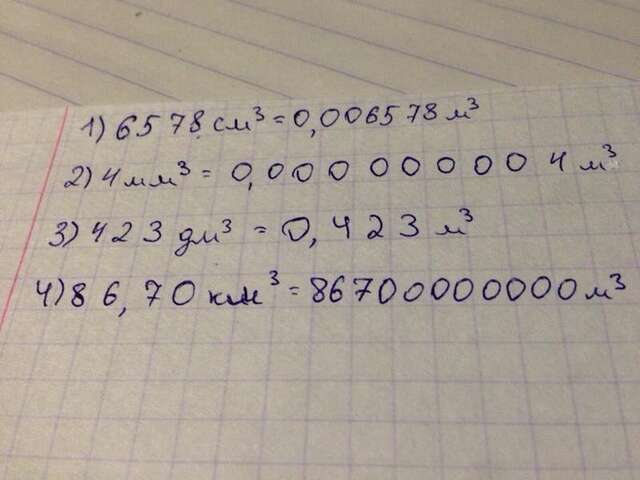 1) 6578 см³ = 0,006578 м³
2) 4 мм³ = 0,000000004 м³
3) 423 дм³ = 0,423 м³
4) 86,70 км³ = 86700000000 м³